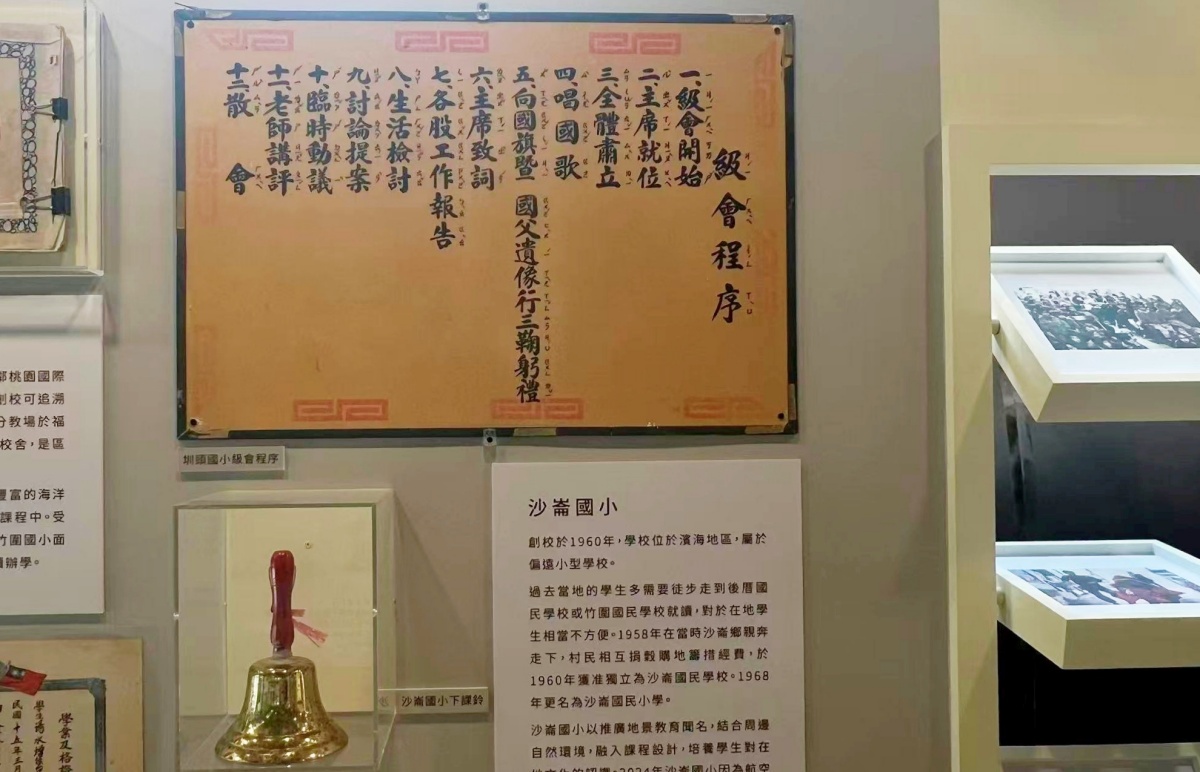 級會程序
一、級會開始
二、主席就位
三、全體肅立
四、唱國歌
五、向國旗暨 國父遺像行三鞠躬禮
六、主席致詞
七、各股工作報告
八、生活檢討
九、討論提案
十、臨時動議
十一、老師講評
十二、散會
圳頭國小級會程序
桃園國際
創校可追溯
分教場於福
校舍，是區
豐富的海洋
課程中。受
竹圍國小面
辦學。
沙崙國小
創校於1960年，學校位於濱海地區，屬於
偏遠小型學校。
過去當地的學生多需要徒步走到後厝國
民學校或竹圍國民學校就讀，對於在地學
生相當不方便。1958年在當時沙崙鄉親奔
走下，村民相互捐穀購地籌措經費，於
1960年獲准獨立為沙崙國民學校。1968
年更名為沙崙國民小學。
沙崙國小以推廣地景教育聞名，結合周邊
自然環境，融入課程設計，培養學生對在
沙崙國小下課鈴
學業及格